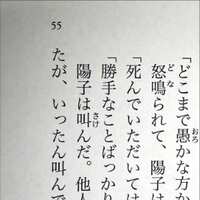 「どこまで愚かな方か
怒鳴られて、陽子は
「死んでいただいては
「勝手なことばっかり
陽子は叫んだ。他人
たが、いったん叫んで
55